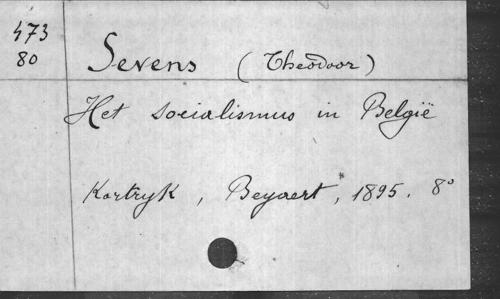 473
80
Sevens (Theodoor)
Het socialismus in België
Kortryk, Beyaert, 1895. 8°